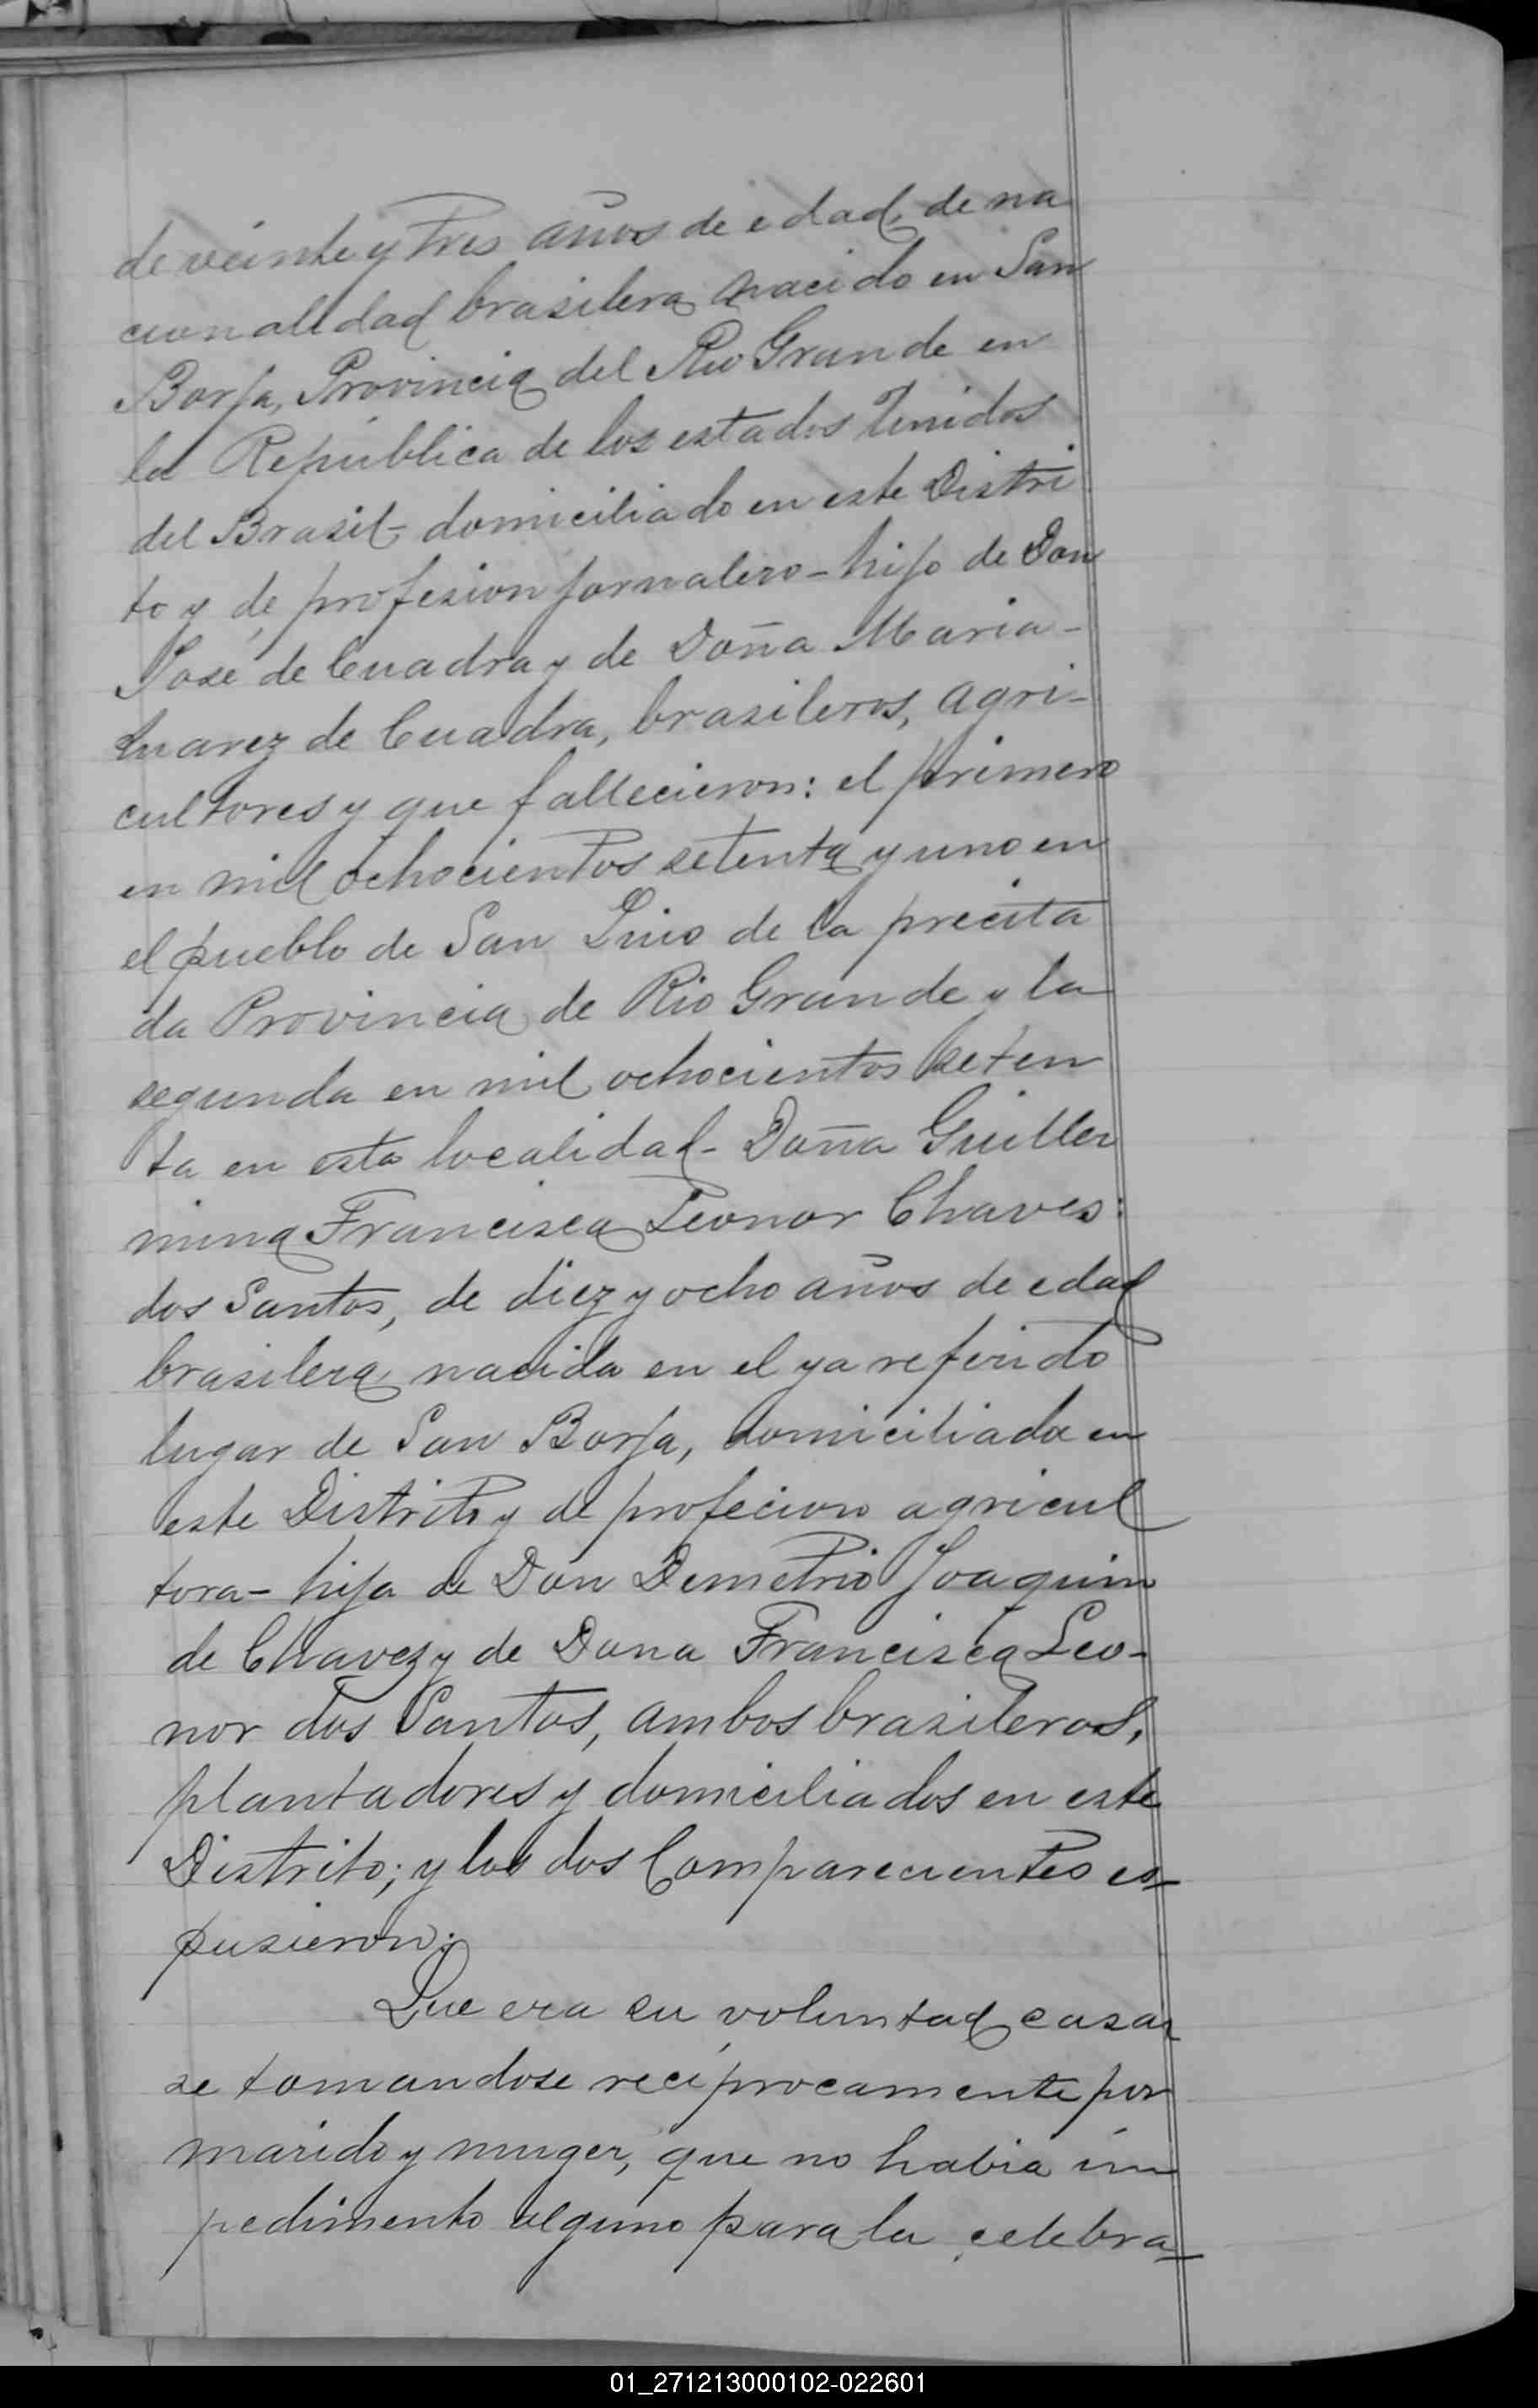 de veinte y tres años de edad, de na
cionalidad brasilera nacido en San
Borja, Provincia del Rio Grande en
la República de los estados Unidos
del Brasil - domiciliado en este Distri
to y de profesion jornalero - hijo de Don
José de Cuadra y de Doña Maria -
Suarez de Cuadra, brasileros, agri-
cultores y que fallecieron: el primero
en mil ochocientos setenta y uno en
el pueblo de San Luis de la precita
da Provincia de Rio Grande y la
segunda en mil ochocientos seten
ta en esta localidad - Doña Guiller
mina Francisca Leonor Chaves:
dos Santos, de diez y ocho años de edad
brasilera, nacida en el ya referido
lugar de San Borja, domiciliada en
este Distrito y de profecion agricul
tora - hija de Don Demetrio Joaquim
de Chavez y de Dona Francisca Leo-
nor dos Santos, ambos brasileros,
plantadores y domiciliados en este
Distrito; y los dos Comparecientes es-
pusieron:
Que era su voluntad casar
se tomandose reciprocamente por
marido y muger, que no habia im
pedimento alguno para la celebra-
01_271213000102-022601